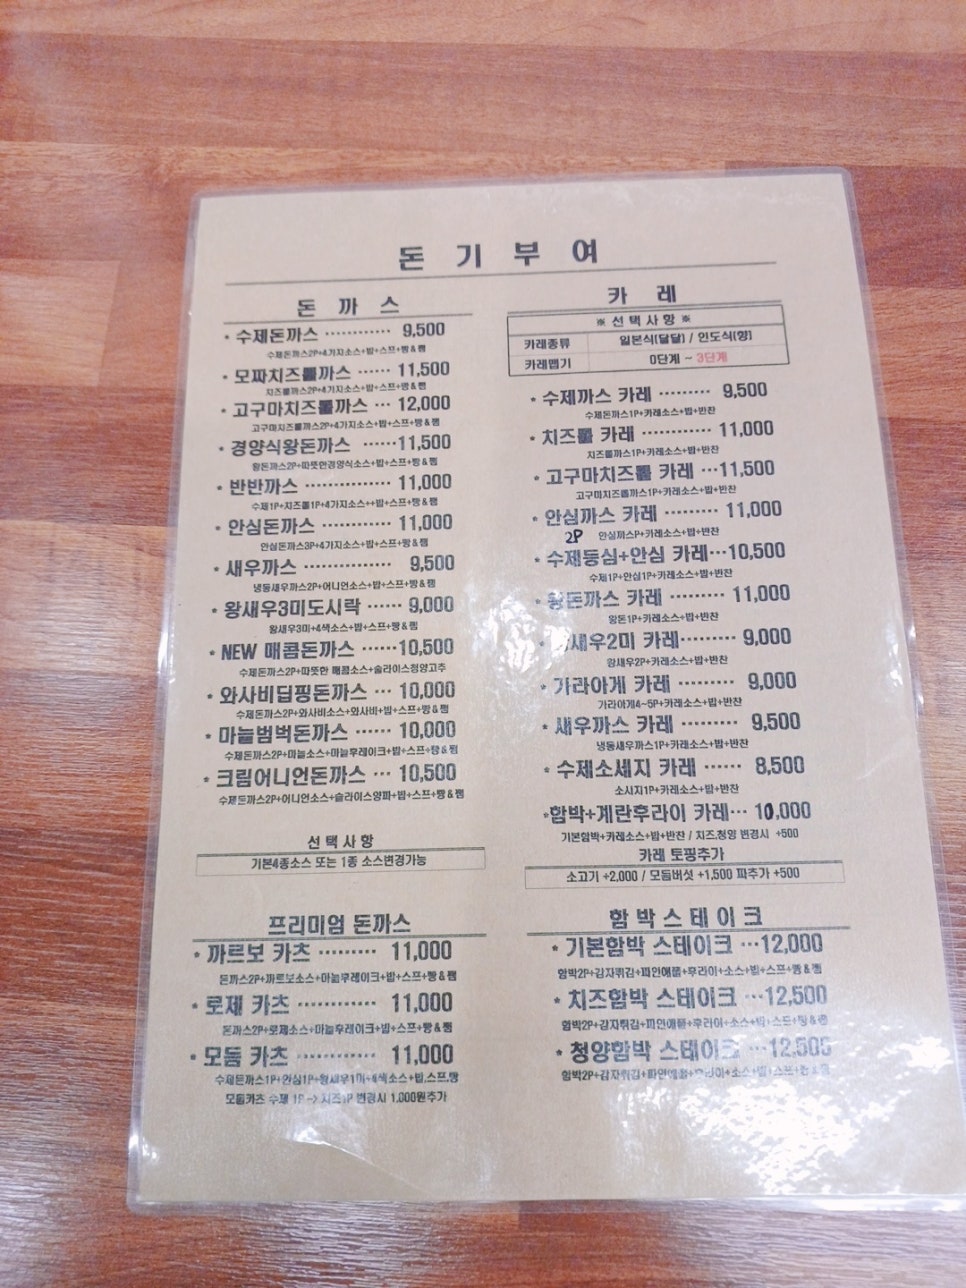 돈 기 부 여
돈 까 스
* 수제돈까스 ············ 9,500
수제돈까스2P+4가지소스+밥+스프+빵&쨈
* 모짜치즈롤까스 ··· 11,500
치즈롤까스2P+4가지소스+밥+스프+빵&쨈
* 고구마치즈롤까스 ··· 12,000
고구마치즈롤까스2P+4가지소스+밥+스프+빵&쨈
* 경양식왕돈까스 ······ 11,500
왕돈까스2P+따뜻한경양식소스+밥+스프+빵&쨈
* 반반까스 ··············· 11,000
수제1P+치즈롤1P+4가지소스++밥+스프+빵&쨈
* 안심돈까스 ············ 11,000
안심돈까스3P+4가지소스+밥+스프+빵&쨈
* 새우까스 ··············· 9,500
냉동새우까스2P+어니언소스+밥+스프+빵&쨈
* 왕새우3미도시락 ······ 9,000
왕새우3미+4색소스+밥+스프+빵&쨈
* NEW 매콤돈까스 ······ 10,500
수제돈까스2P+따뜻한 매콤소스+슬라이스청양고추
* 와사비딥핑돈까스 ··· 10,000
수제돈까스2P+와사비소스+와사비+밥+스프+빵&쨈
* 마늘범벅돈까스 ······ 10,000
수제돈까스2P+마늘소스+마늘후레이크+밥+스프+빵&쨈
* 크림어니언돈까스 ··· 10,500
수제돈까스2P+어니언소스+슬라이스양파+밥+스프+빵&쨈
선택사항
기본4종소스 또는 1종 소스변경가능
프리미엄 돈까스
* 까르보 카츠 ········· 11,000
돈까스2P+까르보소스+마늘후레이크+밥+스프+빵&쨈
* 로제 카츠 ············ 11,000
돈까스2P+로제소스+마늘후레이크+밥+스프+빵&쨈
* 모둠 카츠 ············ 11,000
수제돈까스1P+안심1P+왕새우1미+4색소스+밥,스프,빵
모둠카츠 수제 1P -> 치즈1P 변경시 1,000원추가
카 레
※ 선택사항 ※
카레종류 일본식(달달) / 인도식(향)
카레맵기 0단계 ~ 3단계
* 수제까스 카레 ········· 9,500
수제돈까스1P+카레소스+밥+반찬
* 치즈롤 카레 ············ 11,000
치즈롤까스1P+카레소스+밥+반찬
* 고구마치즈롤 카레 ··· 11,500
고구마치즈롤까스1P+카레소스+밥+반찬
* 안심까스 카레 ········· 11,000
2P 안심까스P+카레소스+밥+반찬
* 수제등심+안심 카레··· 10,500
수제1P+안심1P+카레소스+밥+반찬
* 왕돈까스 카레 ········· 11,000
왕돈1P+카레소스+밥+반찬
새우2미 카레········· 9,000
왕새우2P+카레소스+밥+반찬
* 가라아게 카레 ········· 9,000
가라아게4~5P+카레소스+밥+반찬
* 새우까스 카레 ········· 9,500
냉동새우까스1P+카레소스+밥+반찬
* 수제소세지 카레 ······ 8,500
소시지1P+카레소스+밥+반찬
*함박+계란후라이 카레··· 10,000
기본함박+카레소스+밥+반찬 / 치즈,청양 변경시 +500
카레 토핑추가
소고기 +2,000 / 모듬버섯 +1,500 파추가 +500
함박스테이크
* 기본함박 스테이크 ··· 12,000
함박2P+감자튀김+파인애플+후라이+소스+밥+스프+빵&쨈
* 치즈함박 스테이크 ··· 12,500
함박2P+감자튀김+파인애플+후라이+소스+밥+스프+빵&쨈
* 청양함박 스테이크 ··· 12,500
함박2P+감자튀김+파인애플+후라이+소스+밥+스프+빵&쨈